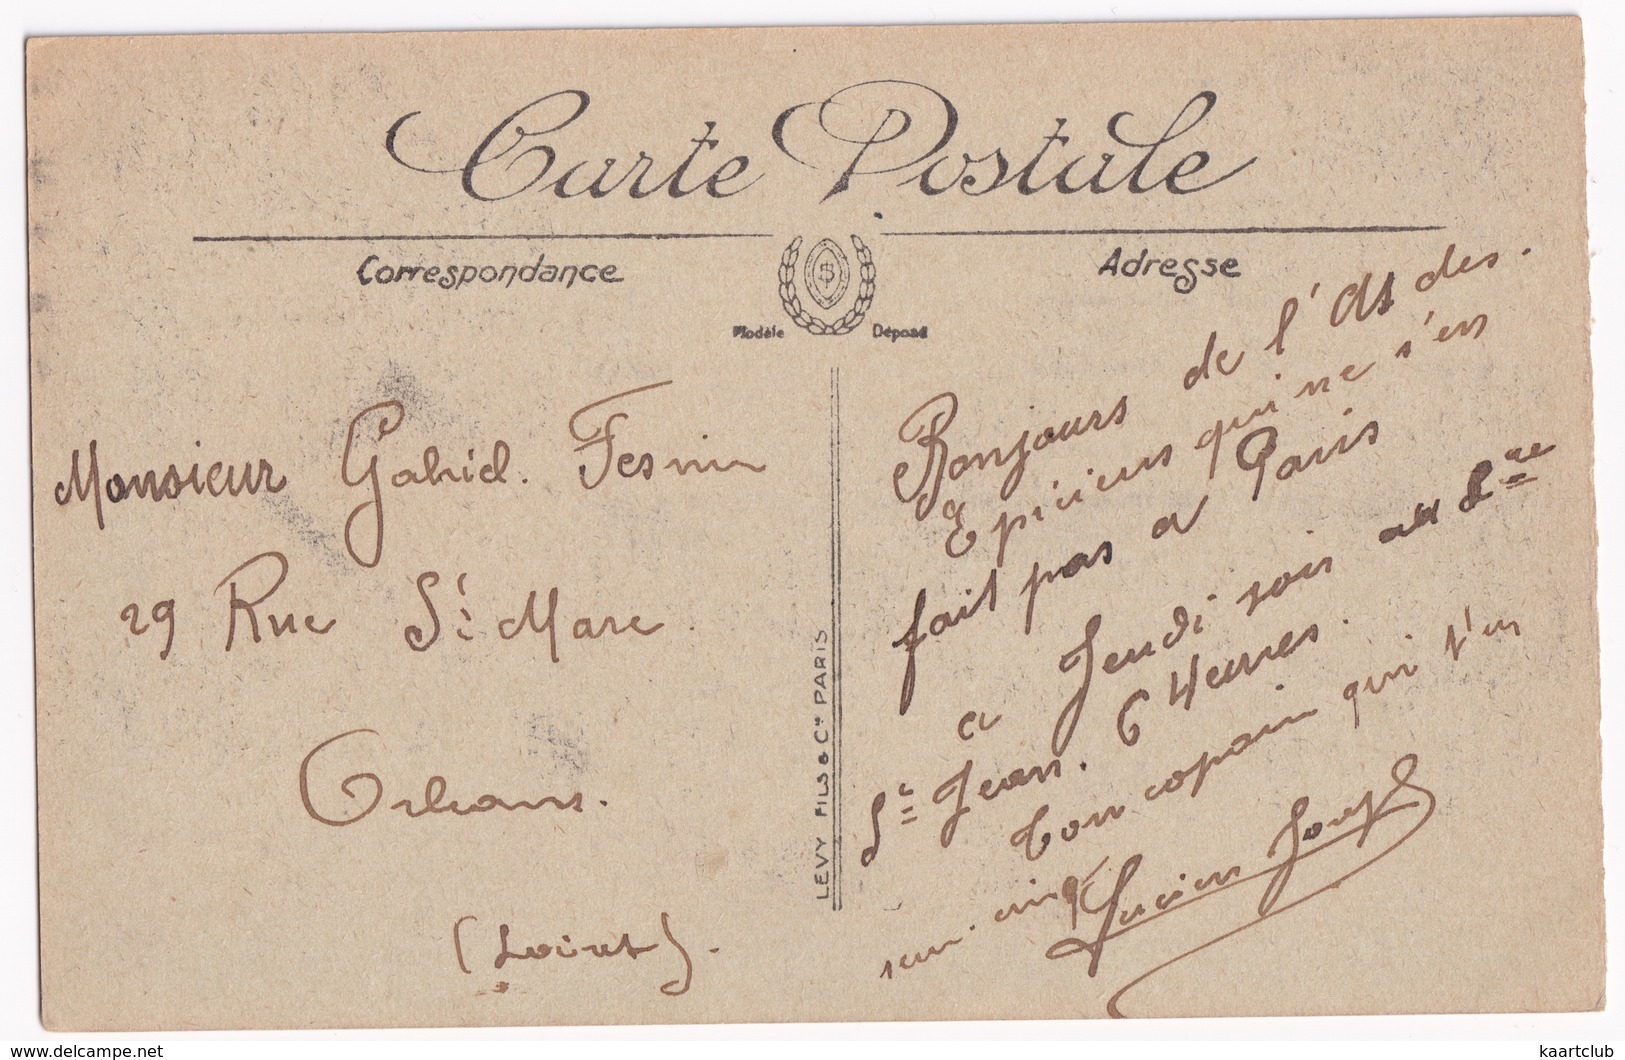 Carte Postale
Correspondance
Adresse
Modèle Déposé
Monsieur Gabriel. Fesnin
29 Rue St Marc.
Orleans.
(Loiret).
LEVY FILS & Cie PARIS
Bonjours de l'As des.
Epiciers qui ne s'en
fait pas a Paris
a Jeudi soir au
St Jean. 6 Heures.
ton copain qui t'en
serre cinq
Lucien Joseph
www.delcampe.net
kaartclub